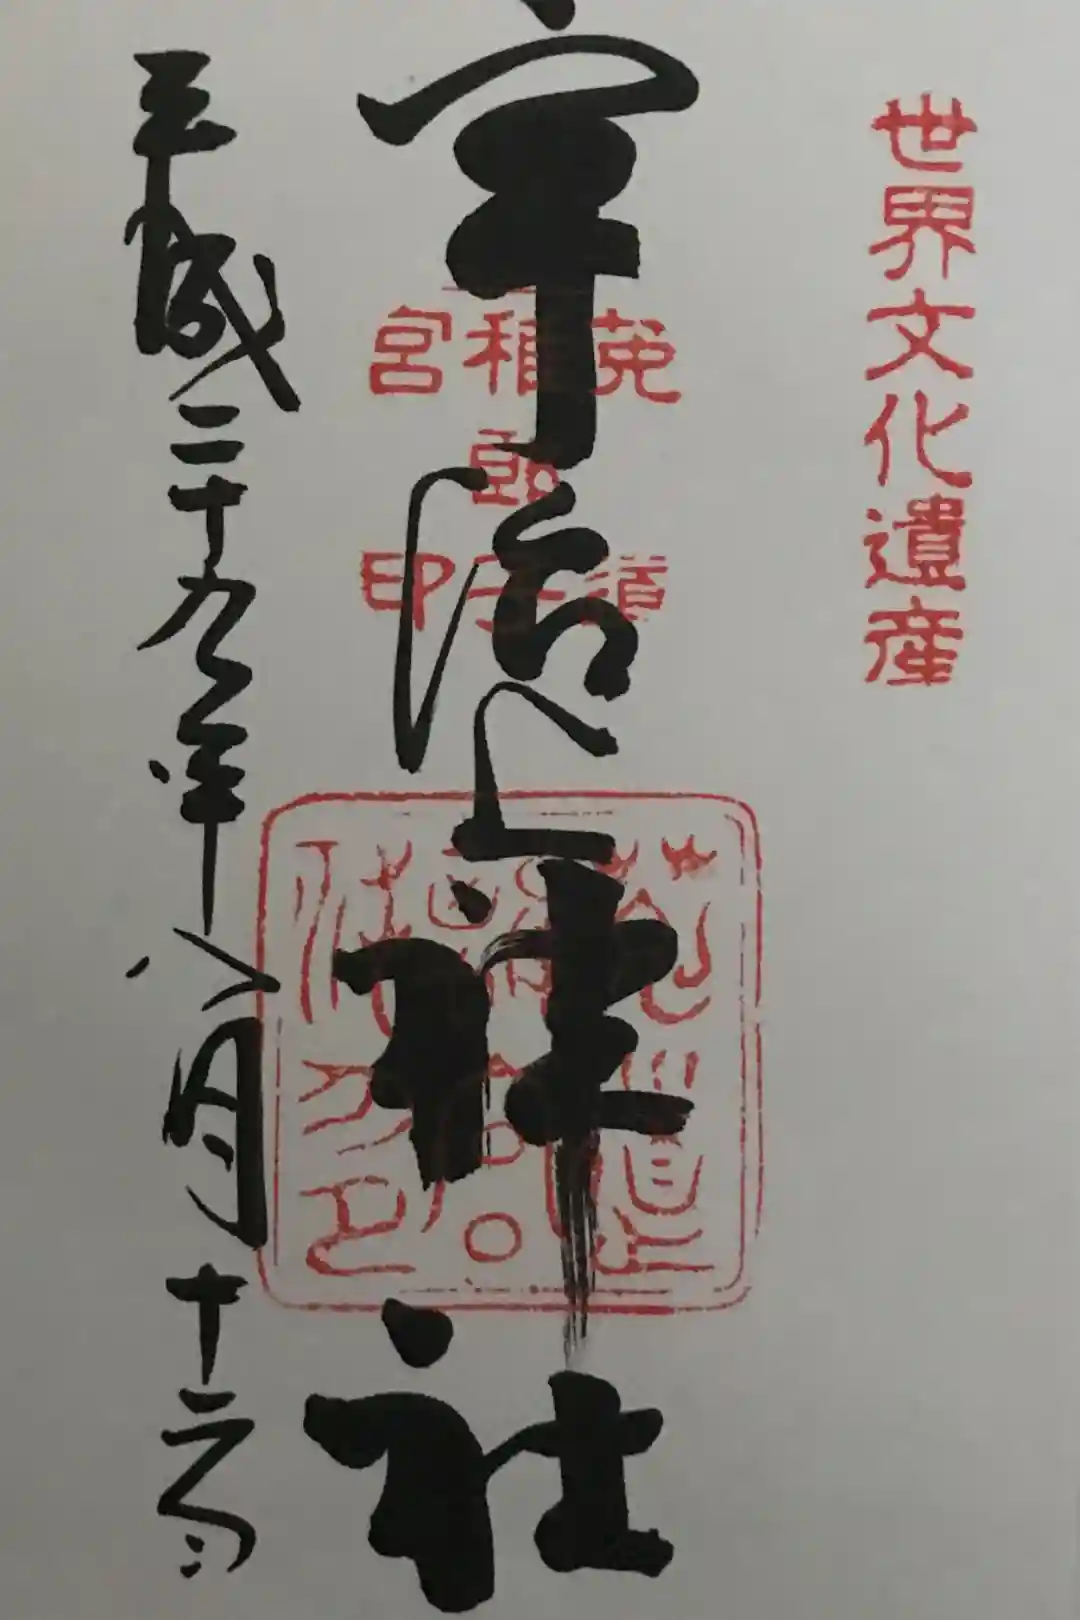 世界文化遺産
宇治上神社
菟道
稚郎子
宮印
平成二十九年八月十二日